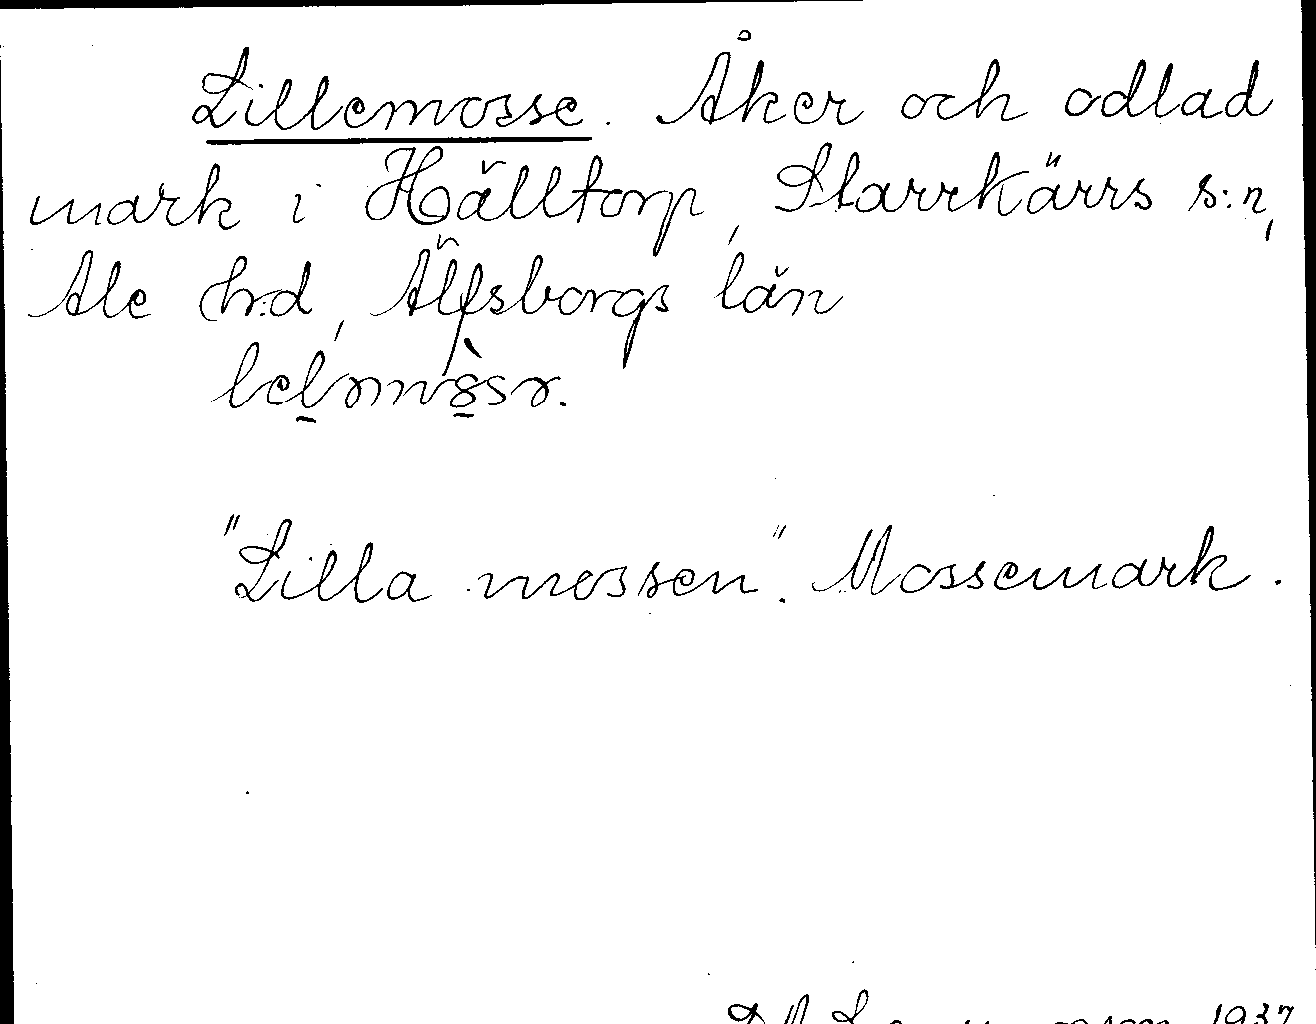 Lillemosse. Åker och odlad
mark i Hälltorp, Starrkärrs s:n,
Ale h:d, Älfsborgs län

"Lilla mossen". Mossemark.
1937